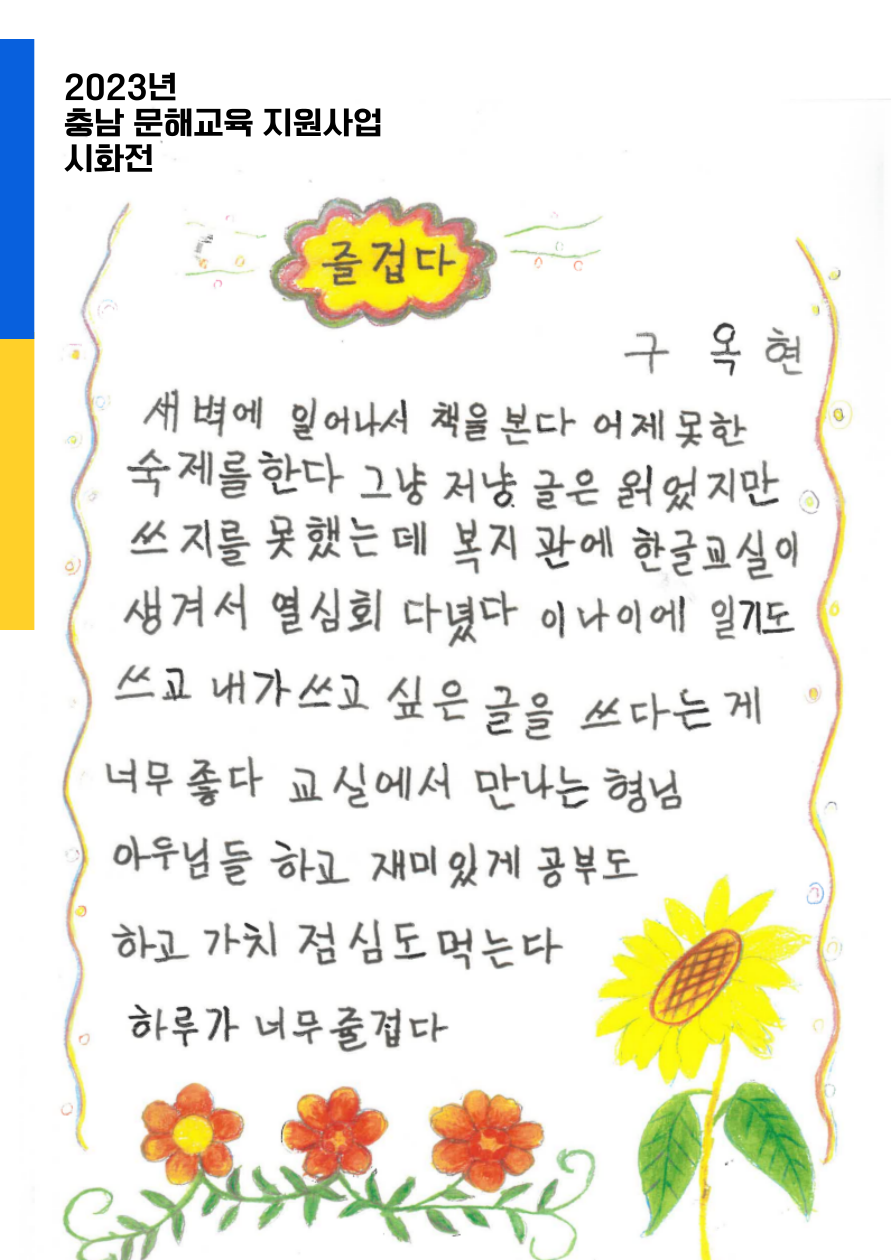 2023년
충남 문해교육 지원사업
시화전
즐겁다
구 옥 현
새벽에 일어나서 책을 본다 어제 못한
숙제를한다 그냥 저냥 글은 읽었지만
쓰지를 못했는데 복지관에 한글교실이
생겨서 열심회 다녔다 이나이에 일기도
쓰고 내가쓰고 싶은 글을 쓰다는게
너무좋다 교실에서 만나는 형님
아우님들 하고 재미있게 공부도
하고 가치 점심도먹는다
하루가 너무즐겁다